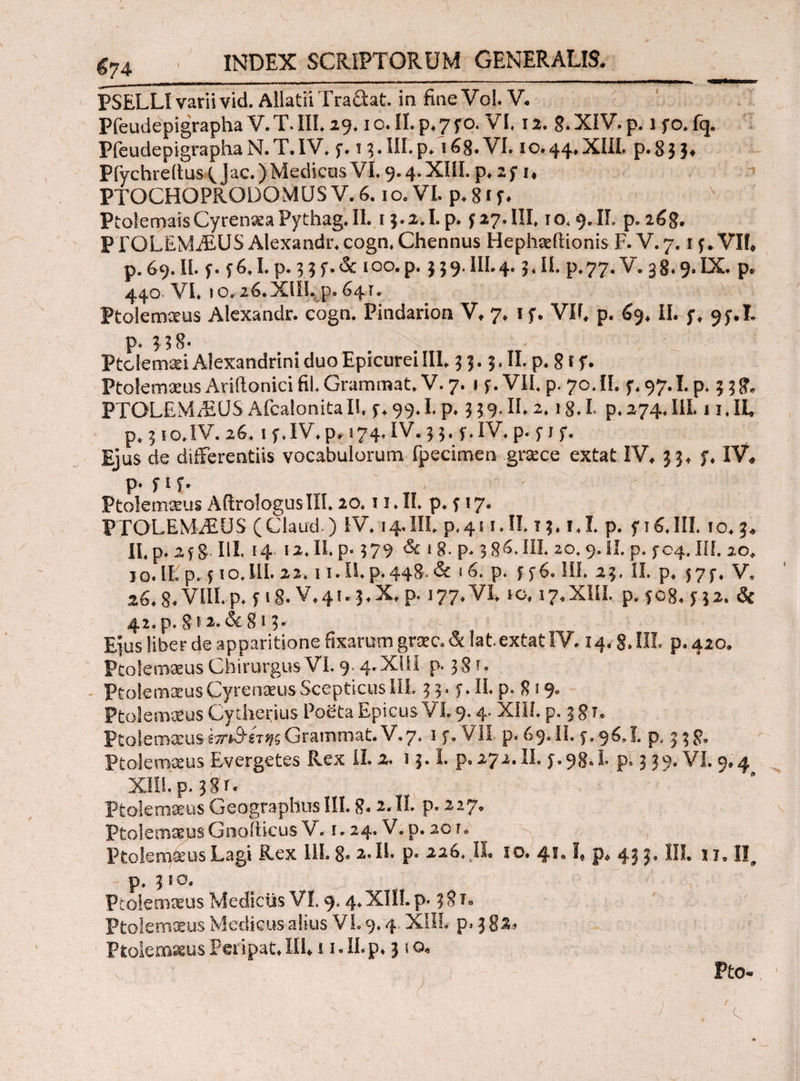 674 INDEX SCRIPTORUM GENERALIS.
PSELLI varii vid. Allatii Tractat. in fine Vol. V.
Pſeudepigrapha V. T. III. 29. 10. II. p. 750. VI. 12. 8. XIV. p. 150. ſq.
Pſeudepigrapha N. T. IV. 5. 13. III. p. 168. VI. 10. 44. XIII. p. 833.
Pſychreſtus (Jac.) Medicus VI. 9. 4. XIII. p. 251.
PTOCHOPRODOMUS V. 6. 10. VI. p. 815.
Ptolemais Cyrenæa Pythag. II. 13. 2. I. p. 527. III. 10. 9. II. p. 268.
PTOLEMÆUS Alexandr. cogn. Chennus Hephæſtionis F. V. 7. 15. VII.
p. 69. II. 5. 56. I. p. 335. & 100. p. 339. III. 4. 3. II. p. 77. V. 38. 9. IX. p.
440 VI. 10. 26. XIII. p. 641.
Ptolemæus Alexandr. cogn. Pindarion V. 7. 15. VII. p. 69. II. 5. 95. I.
p. 338.
Ptolemæi Alexandrini duo Epicurei III. 33. 3. II. p. 815.
Ptolemæus Ariſtonici fil. Grammat. V. 7. 15. VII. p. 70. II. 5. 97. I. p. 338.
PTOLEMÆUS Aſcalonita II. 5. 99. I. p. 339. II. 2. 18. I. p. 274. III. 11. II.
p. 310. IV. 26. 15. IV. p. 174. IV. 33. 5. IV. p. 515.
Ejus de differentiis vocabulorum ſpecimen græce extat IV. 33. 5. IV.
p. 515.
Ptolemæus Aſtrologus III. 20. 11. II. p. 517.
PTOLEMÆUS (Claud.) IV. 14. III. p. 411. II. 13. 1. I. p. 516. III. 10. 3.
II. p. 258 III. 14 12. II. p. 379 & 18. p. 386. III. 20. 9. II. p. 504. III. 20.
10. II. p. 510. III. 22. 11. II. p. 448. & 16. p. 556. III. 23. II. p. 575. V.
26. 8. VIII. p. 518. V. 41. 3. X. p. 177. VI. 10. 17. XIII. p. 508. 532. &
42. p. 812. & 813.
Ejus liber de apparitione fixarum græc. & lat. extat IV. 14. 8. III. p. 420.
Ptolemæus Chirurgus VI. 9. 4. XIII p. 381.
Ptolemæus Cyrenæus Scepticus III. 33. 5. II. p. 819.
Ptolemæus Cytherius Poëta Epicus VI. 9. 4. XIII. p. 381.
Ptolemæus ἐπιθέτης Grammat. V. 7. 15. VII p. 69. II. 5. 96. I. p. 338.
Ptolemæus Evergetes Rex II. 2. 13. I. p. 272. II. 5. 98. I. p. 339. VI. 9. 4
XIII. p. 381.
Ptolemæus Geographus III. 8. 2. II. p. 227.
Ptolemæus Gnoſticus V. 1. 24. V. p. 201.
Ptolemæus Lagi Rex III. 8. 2. II. p. 226. II. 10. 41. I. p. 433. III. 11. II.
p. 310.
Ptolemæus Medicus VI. 9. 4. XIII. p. 381.
Ptolemæus Medicus alius VI. 9. 4 XIII. p. 382.
Ptolemæus Peripat. III. 11. II. p. 310.
Pto-